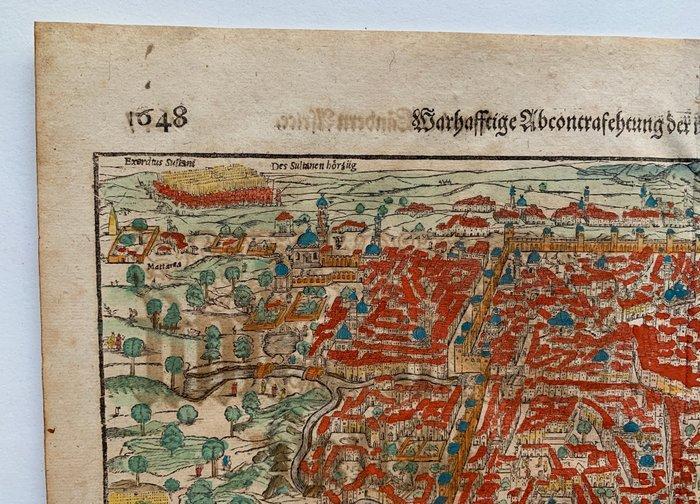 1648
Warhafftige Abcontrafehtung der
Exercitus Sultani
Des Sultanen hörzüg
Mattarea